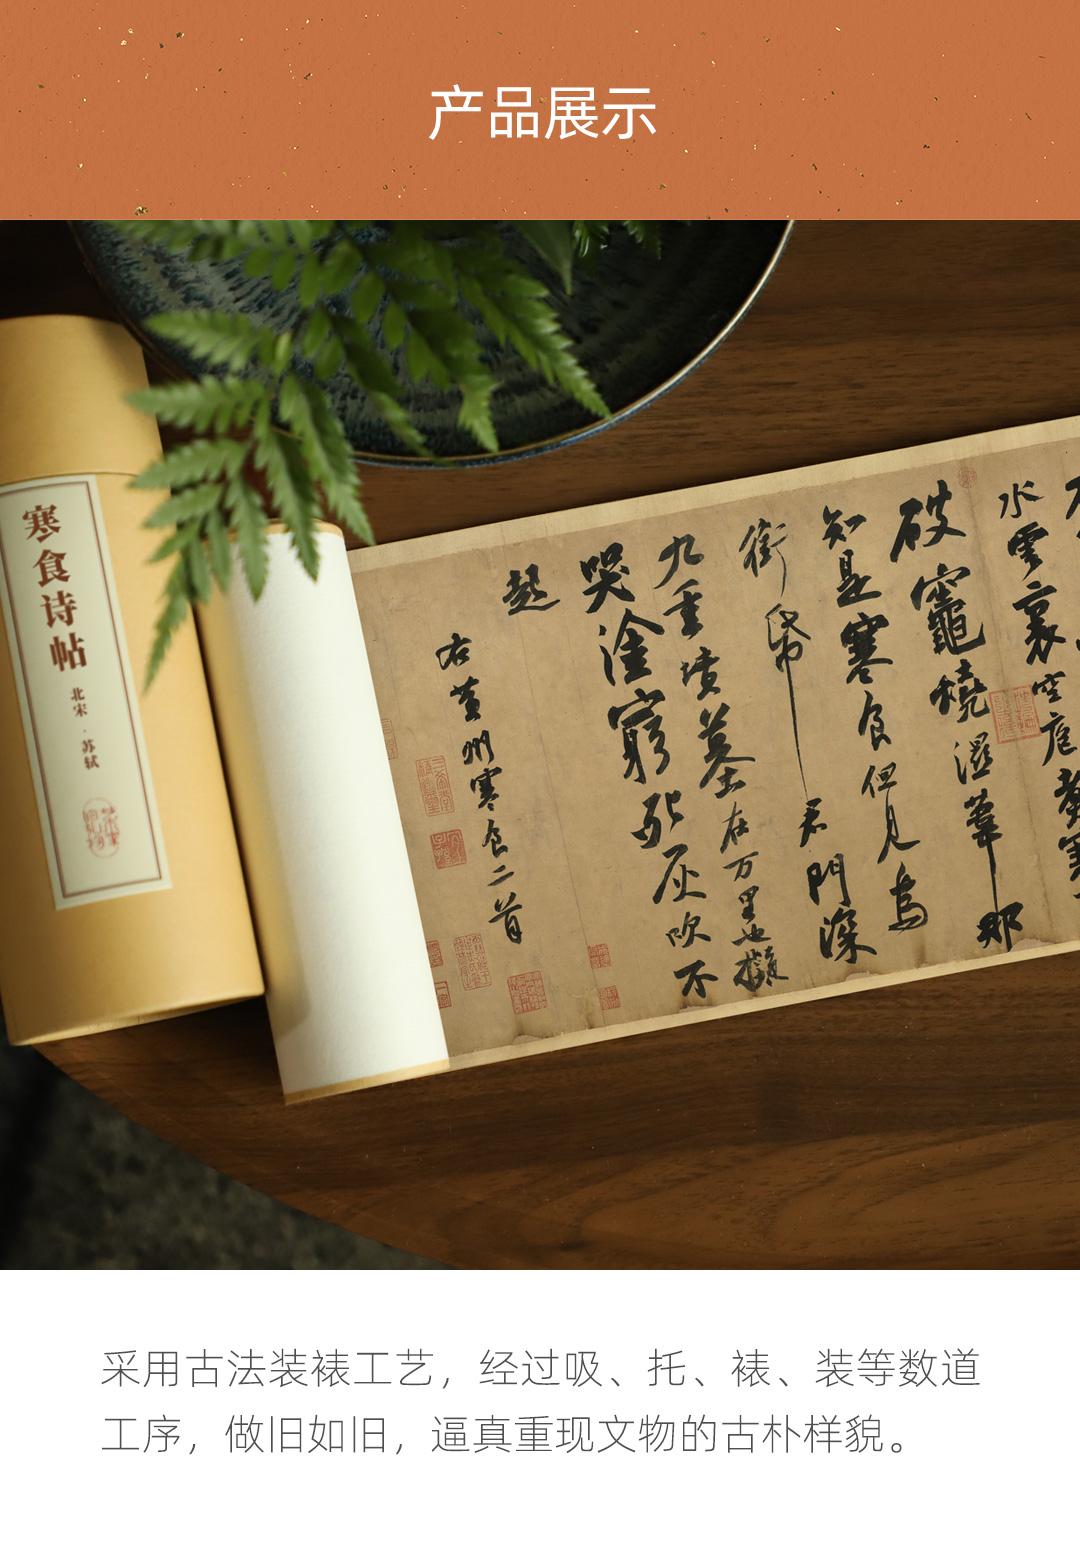 产品展示
寒食诗帖
北宋·苏轼
水雲裏空庖煑寒
破竈燒濕葦那
知是寒食但見烏
銜帋君門深
九重墳墓在万里也擬
哭塗窮死灰吹不
起
右黄州寒食二首
采用古法装裱工艺，经过吸、托、裱、装等数道
工序，做旧如旧，逼真重现文物的古朴样貌。